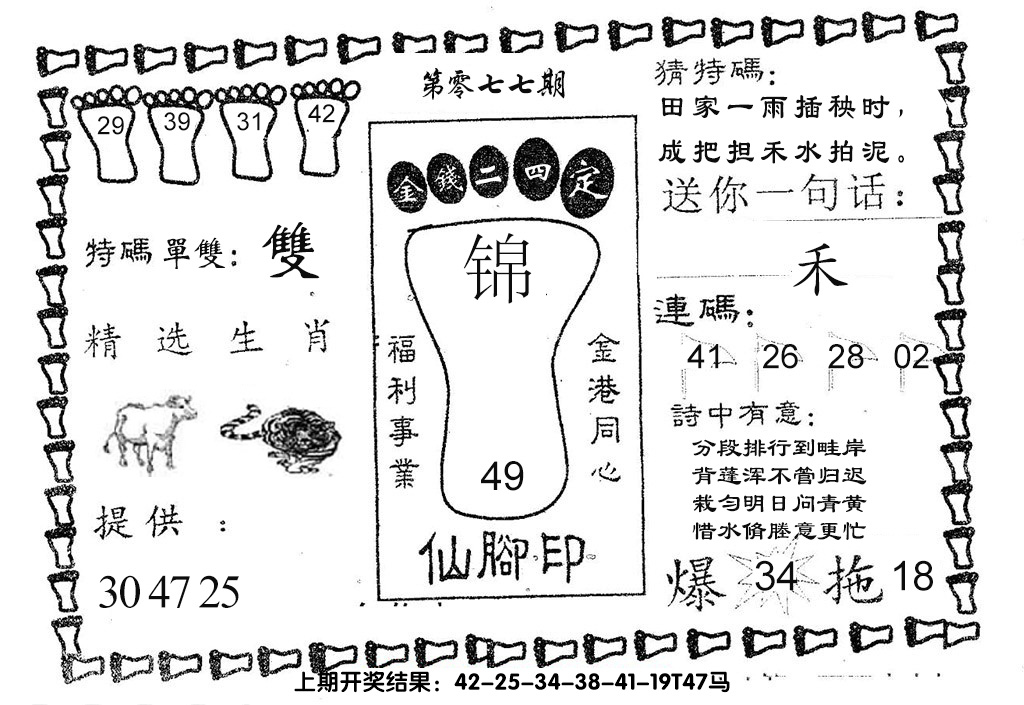 第零七七期
29 39 31 42
特碼單雙：雙
精选生肖
提供：
30 47 25
金錢二四定
锦
福利事業
金港同心
49
仙腳印
猜特碼：
田家一雨插秧时，
成把担禾水拍泥。
送你一句话：
禾
連碼：
41 26 28 02
詩中有意：
分段排行到畦岸
背蓬浑不管归迟
栽匀明日问青黄
惜水脩塍意更忙
爆 34 拖 18
上期开奖结果：42-25-34-38-41-19T47马